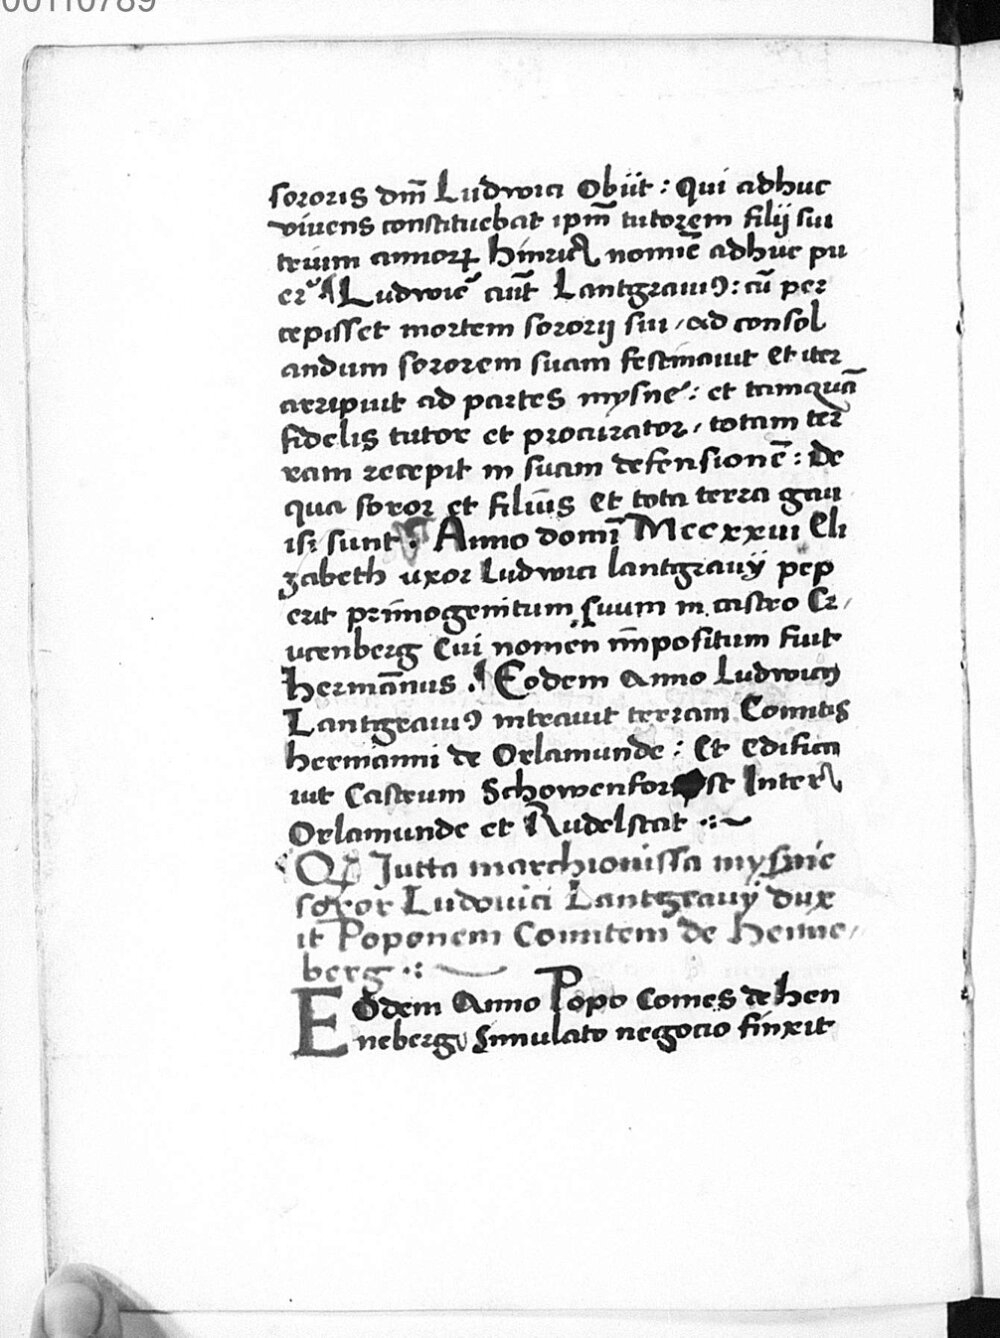 00110789
sororis dm̄ Ludwici Obiit : Qui adhuc
vivens constituebat ipm̄ tutorem filij sui
trium annoꝝ Hinrici nomīe adhuc pu
er Ludwic᷒ aūt Lantgraviꝰ : cū per
cepisset mortem sororij sui / ad consol
andum sororem suam festinavit Et iter
arripuit ad partes mysne : et tamquā
fidelis tutor et procurator / totam ter
ram recepit in suam defensionē : De
qua soror et filius Et tota terra gavi
isi sunt . Anno domī MCCxxiii Eli
zabeth uxor Ludwici lantgravij pep
erit primogenitum suum in castro Cr /
ucenberg Cui nomen impositum fuit
hermannus . Eodem Anno Ludwicꝰ
Lantgraviꝰ intravit terram Comitis
hermanni de Orlamunde : Et edifica
vit Castrum Schowenforst Inter
Orlamunde et Rudelstat
Qđ Jutta marchionissa mysnie
soror Ludovici Lantgravij dux
it Poponem Comitem de Henne /
berg
Eodem Anno Popo Comes de hen
neberg Simulato negocio finxit